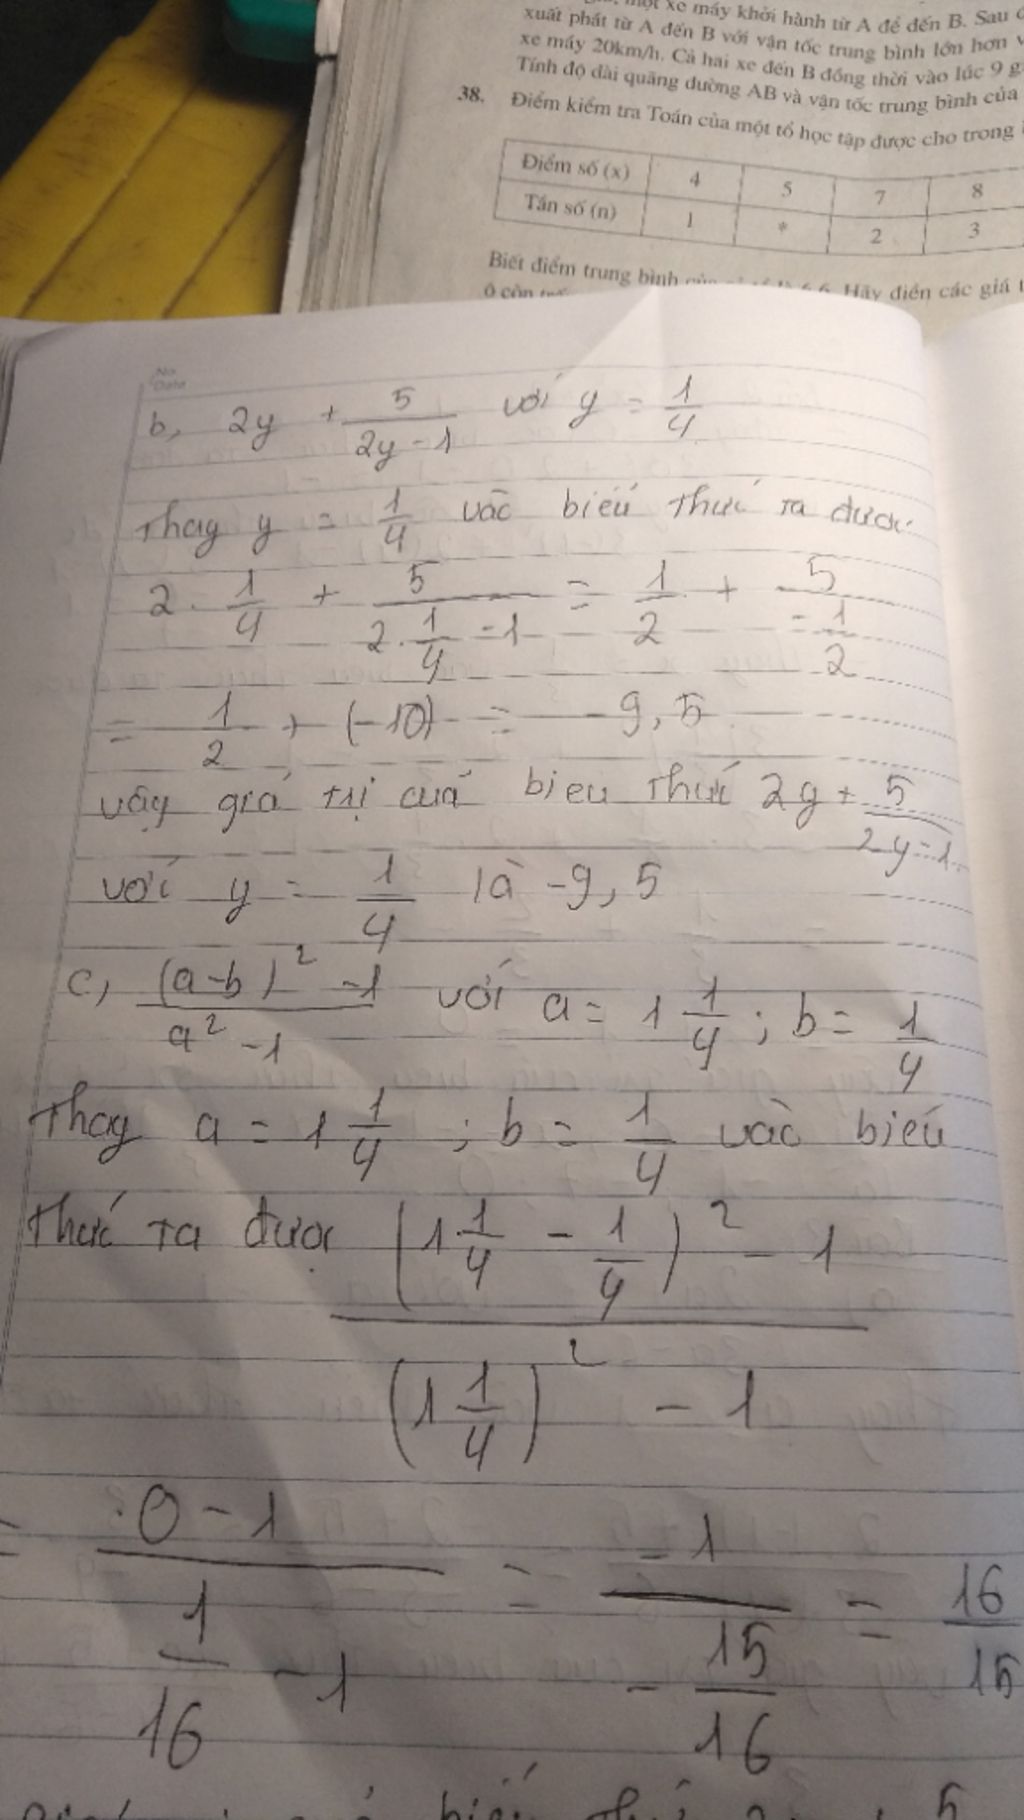 một xe máy khởi hành từ A để đến B. Sau
xuất phát từ A đến B với vận tốc trung bình lớn hơn
xe máy 20km/h. Cả hai xe đến B đồng thời vào lúc 9 g
Tính độ dài quãng đường AB và vận tốc trung bình của
38. Điểm kiểm tra Toán của một tổ học tập được cho trong
Điểm số (x) 4 5 7 8
Tần số (n) 1 * 2 3
Biết điểm trung bình 6,6. Hãy điền các giá t
ô còn
No
Date
b, 2y + 5/(2y - 1) với y = 1/4
Thay y = 1/4 vào biểu thức ta được
2 . 1/4 + 5/(2 . 1/4 - 1) = 1/2 + 5/(-1/2)
= 1/2 + (-10) = -9,5
vậy giá trị của biểu thức 2y + 5/(2y - 1)
với y = 1/4 là -9,5
c, ((a-b)² - 1)/(a² - 1) với a = 1 1/4 ; b = 1/4
Thay a = 1 1/4 ; b = 1/4 vào biểu
thức ta được ((1 1/4 - 1/4)² - 1)/((1 1/4)² - 1)
= (0 - 1)/(1/16 - 1) = (-1)/(-15/16) = 16/15